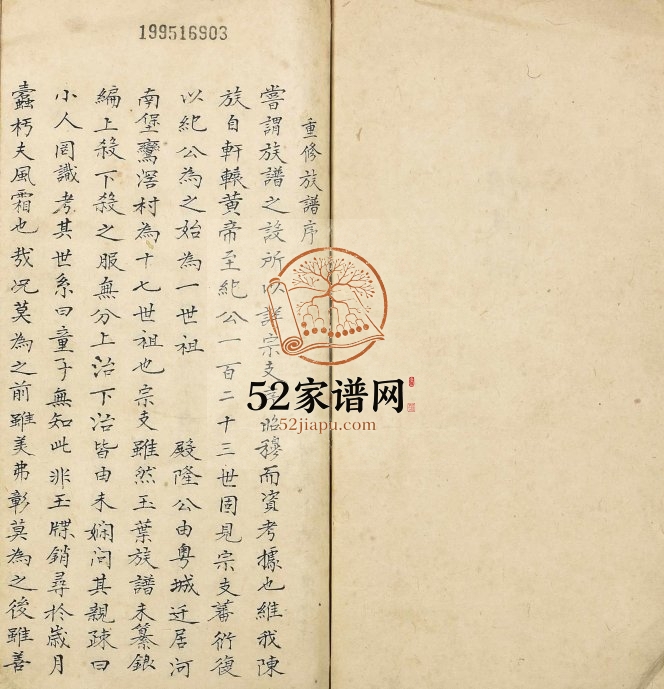 199516903
重修族譜序
嘗謂族譜之設所以詳宗支 昭穆而資考據也維我陳
族自軒轅黄帝至紀公一百二十三世固見宗支蕃衍復
以紀公為之始為一世祖 殿隆公由粵城迁居河
南堡 滘村為十七世祖也宗支雖然玉葉族譜未纂銀
編上殺下殺之服無分上治下治皆由未嫻问其親疎曰
小人罔識考其世系曰童子無知此非玉牒銷尋於歲月
蠹朽夫風霜也哉况莫為之前雖美弗彰莫為之後雖善
52家谱网
52jiapu.com